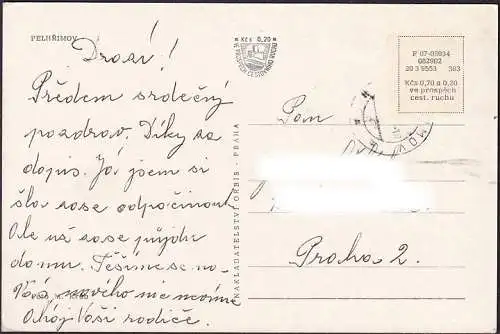 PELHŘIMOV
Drazí!
Předem srdečný
pozdrav. Díky za
dopis. Já jsem si
šla zase odpočinout
Ale už zase půjdu
domu. Těšíme se na
Vás, nového nic nevíme
Ahoj Vaši rodiče.
Kčs 0,20
VE PROSPĚCH CESTOVNÍHO RUCHU
NAKLADATELSTVÍ ORBIS - PRAHA
F 07-05934
G52902
20 3 5553 383
Kčs 0,70 a 0,20
ve prospěch
cest. ruchu
Pan
Praha 2.